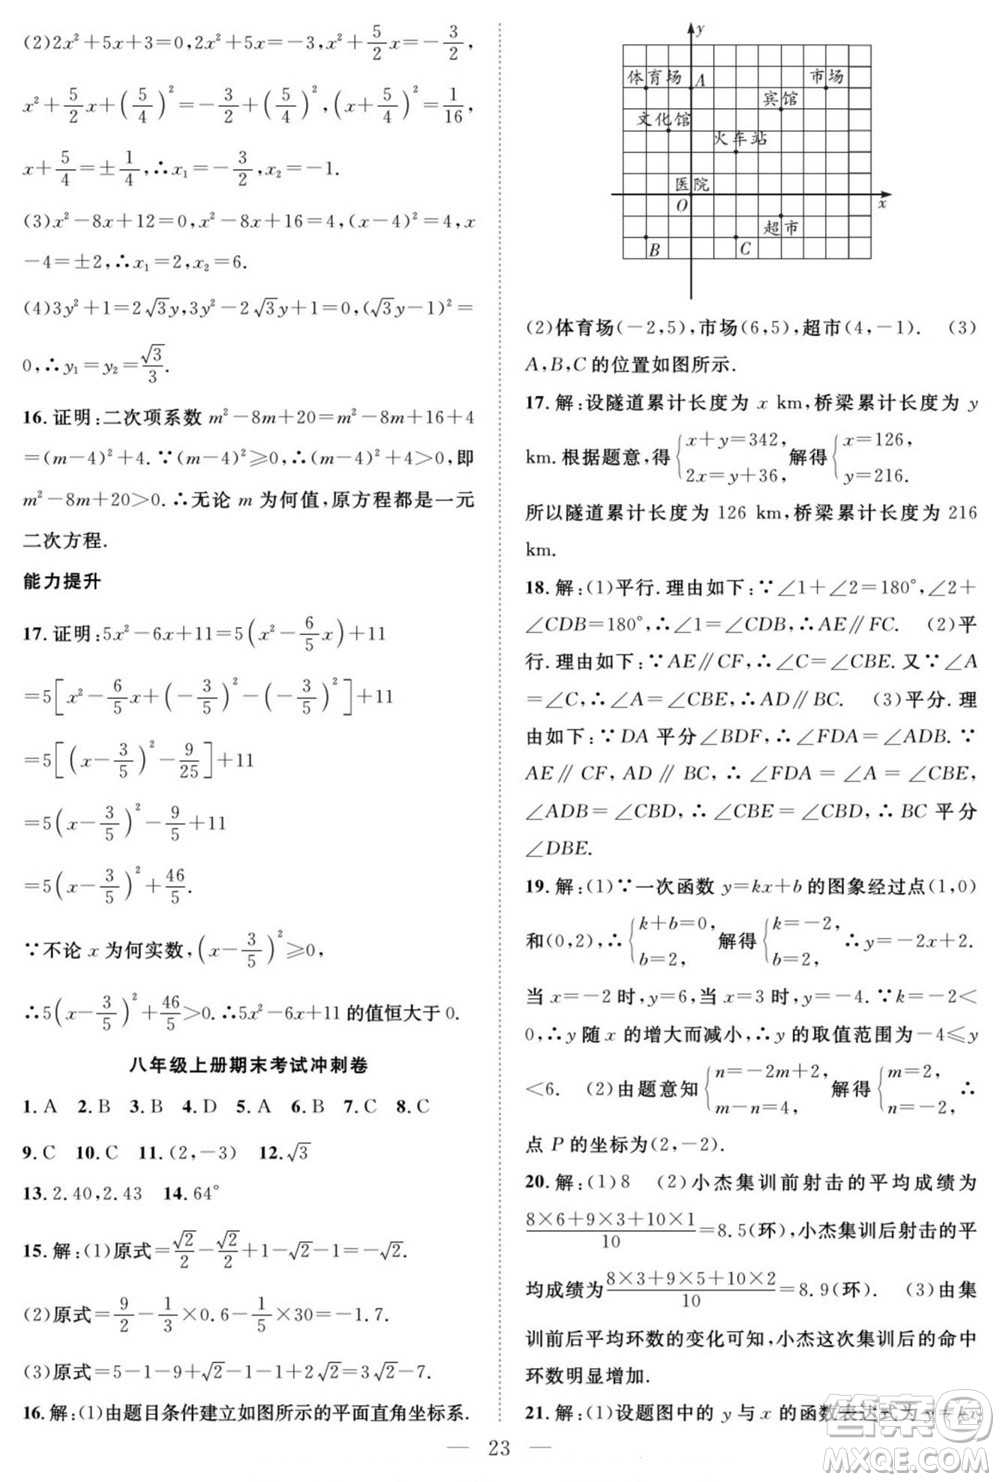 (2)2x²+5x+3=0,2x²+5x=-3,x²+5/2x=-3/2,
x²+5/2x+(5/4)²=-3/2+(5/4)²,(x+5/4)²=1/16,
x+5/4=±1/4,∴x₁=-3/2,x₂=-1.
(3)x²-8x+12=0,x²-8x+16=4,(x-4)²=4,x
-4=±2,∴x₁=2,x₂=6.
(4)3y²+1=2√3y,3y²-2√3y+1=0,(√3y-1)²=
0,∴y₁=y₂=√3/3.
16.证明:二次项系数m²-8m+20=m²-8m+16+4
=(m-4)²+4.∵(m-4)²≥0,∴(m-4)²+4>0,即
m²-8m+20>0.∴无论m为何值,原方程都是一元
二次方程.
能力提升
17.证明:5x²-6x+11=5(x²-6/5x)+11
=5[x²-6/5x+(-3/5)²-(-3/5)²]+11
=5[(x-3/5)²-9/25]+11
=5(x-3/5)²-9/5+11
=5(x-3/5)²+46/5.
∵不论x为何实数,(x-3/5)²≥0,
∴5(x-3/5)²+46/5>0.∴5x²-6x+11的值恒大于0.
八年级上册期末考试冲刺卷
1.A 2.B 3.C 4.D 5.A 6.B 7.B 8.C
9.C 10.C 11.(2,-3) 12.√3
13.2.40,2.43 14.64°
15.解:(1)原式=√2/2-√2/2+1-√2=1-√2.
(2)原式=9/2-1/2×0.6-1/5×30=-1.7.
(3)原式=5-1-9+√2-2+2√2=3√2-7.
16.解:(1)由题目条件建立如图所示的平面直角坐标系.
y
体育场 A 市场
宾馆
文化馆
火车站
医院
O x
超市
B C
(2)体育场(-2,5),市场(6,5),超市(4,-1). (3)
A,B,C的位置如图所示.
17.解:设隧道累计长度为x km,桥梁累计长度为y
km.根据题意,得{x+y=342,2x=y+36,解得{x=126,y=216.
所以隧道累计长度为126 km,桥梁累计长度为216
km.
18.解:(1)平行.理由如下:∵∠1+∠2=180°,∠2
+∠CDB=180°,∴∠1=∠CDB,∴AE∥FC. (2)平
行.理由如下:∵AE∥CF,∴∠C=∠CBE.又∵∠A
=∠C,∴∠A=∠CBE,∴AD∥BC. (3)平分.理
由如下:∵DA平分∠BDF,∴∠FDA=∠ADB.∵
AE∥CF,AD∥BC,∴∠FDA=∠A=∠CBE,
∠ADB=∠CBD,∴∠CBE=∠CBD,∴BC平分
∠DBE.
19.解:(1)∵一次函数y=kx+b的图象经过点(1,0)
和(0,2),∴{k+b=0,b=2,解得{k=-2,b=2,∴y=-2x+2.
当x=-2时,y=6,当x=3时,y=-4.∵k=-2<
0,∴y随x的增大而减小,∴y的取值范围是-4≤y
<6. (2)由题意知{n=-2m+2,m-n=4,解得{m=2,n=-2,∴
点P的坐标为(2,-2).
20.解:(1)8 (2)小杰集训前射击的平均成绩为
8×6+9×3+10×1/10=8.5(环),小杰集训后射击的平
均成绩为8×3+9×5+10×2/10=8.9(环). (3)由集
训前后平均环数的变化可知,小杰这次集训后的命中
环数明显增加.
21.解:(1)设题图中的y与x的函数表达式为y=kx
— 23 —
答案圈
MXQE.COM